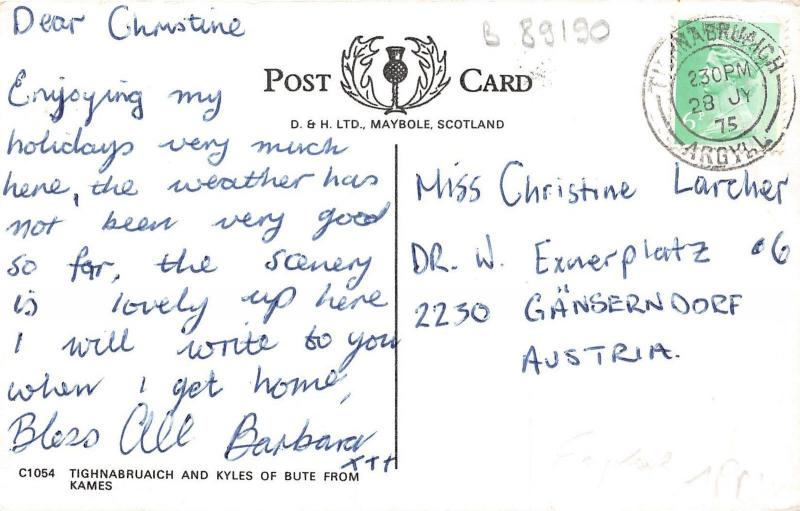 Dear Christine
Enjoying my
holidays very much
here, the weather has
not been very good
so far, the scenery
is lovely up here
I will write to you
when I get home,
Bless All Barbara
xxx
C1054 TIGHNABRUAICH AND KYLES OF BUTE FROM
KAMES
B 89190
POST CARD
D. & H. LTD., MAYBOLE, SCOTLAND
TIGHNABRUAICH
230PM
28 JY
75
ARGYLL
Miss Christine Larcher
DR. W. Exnerplatz 6
2230 GÄNSERNDORF
AUSTRIA.